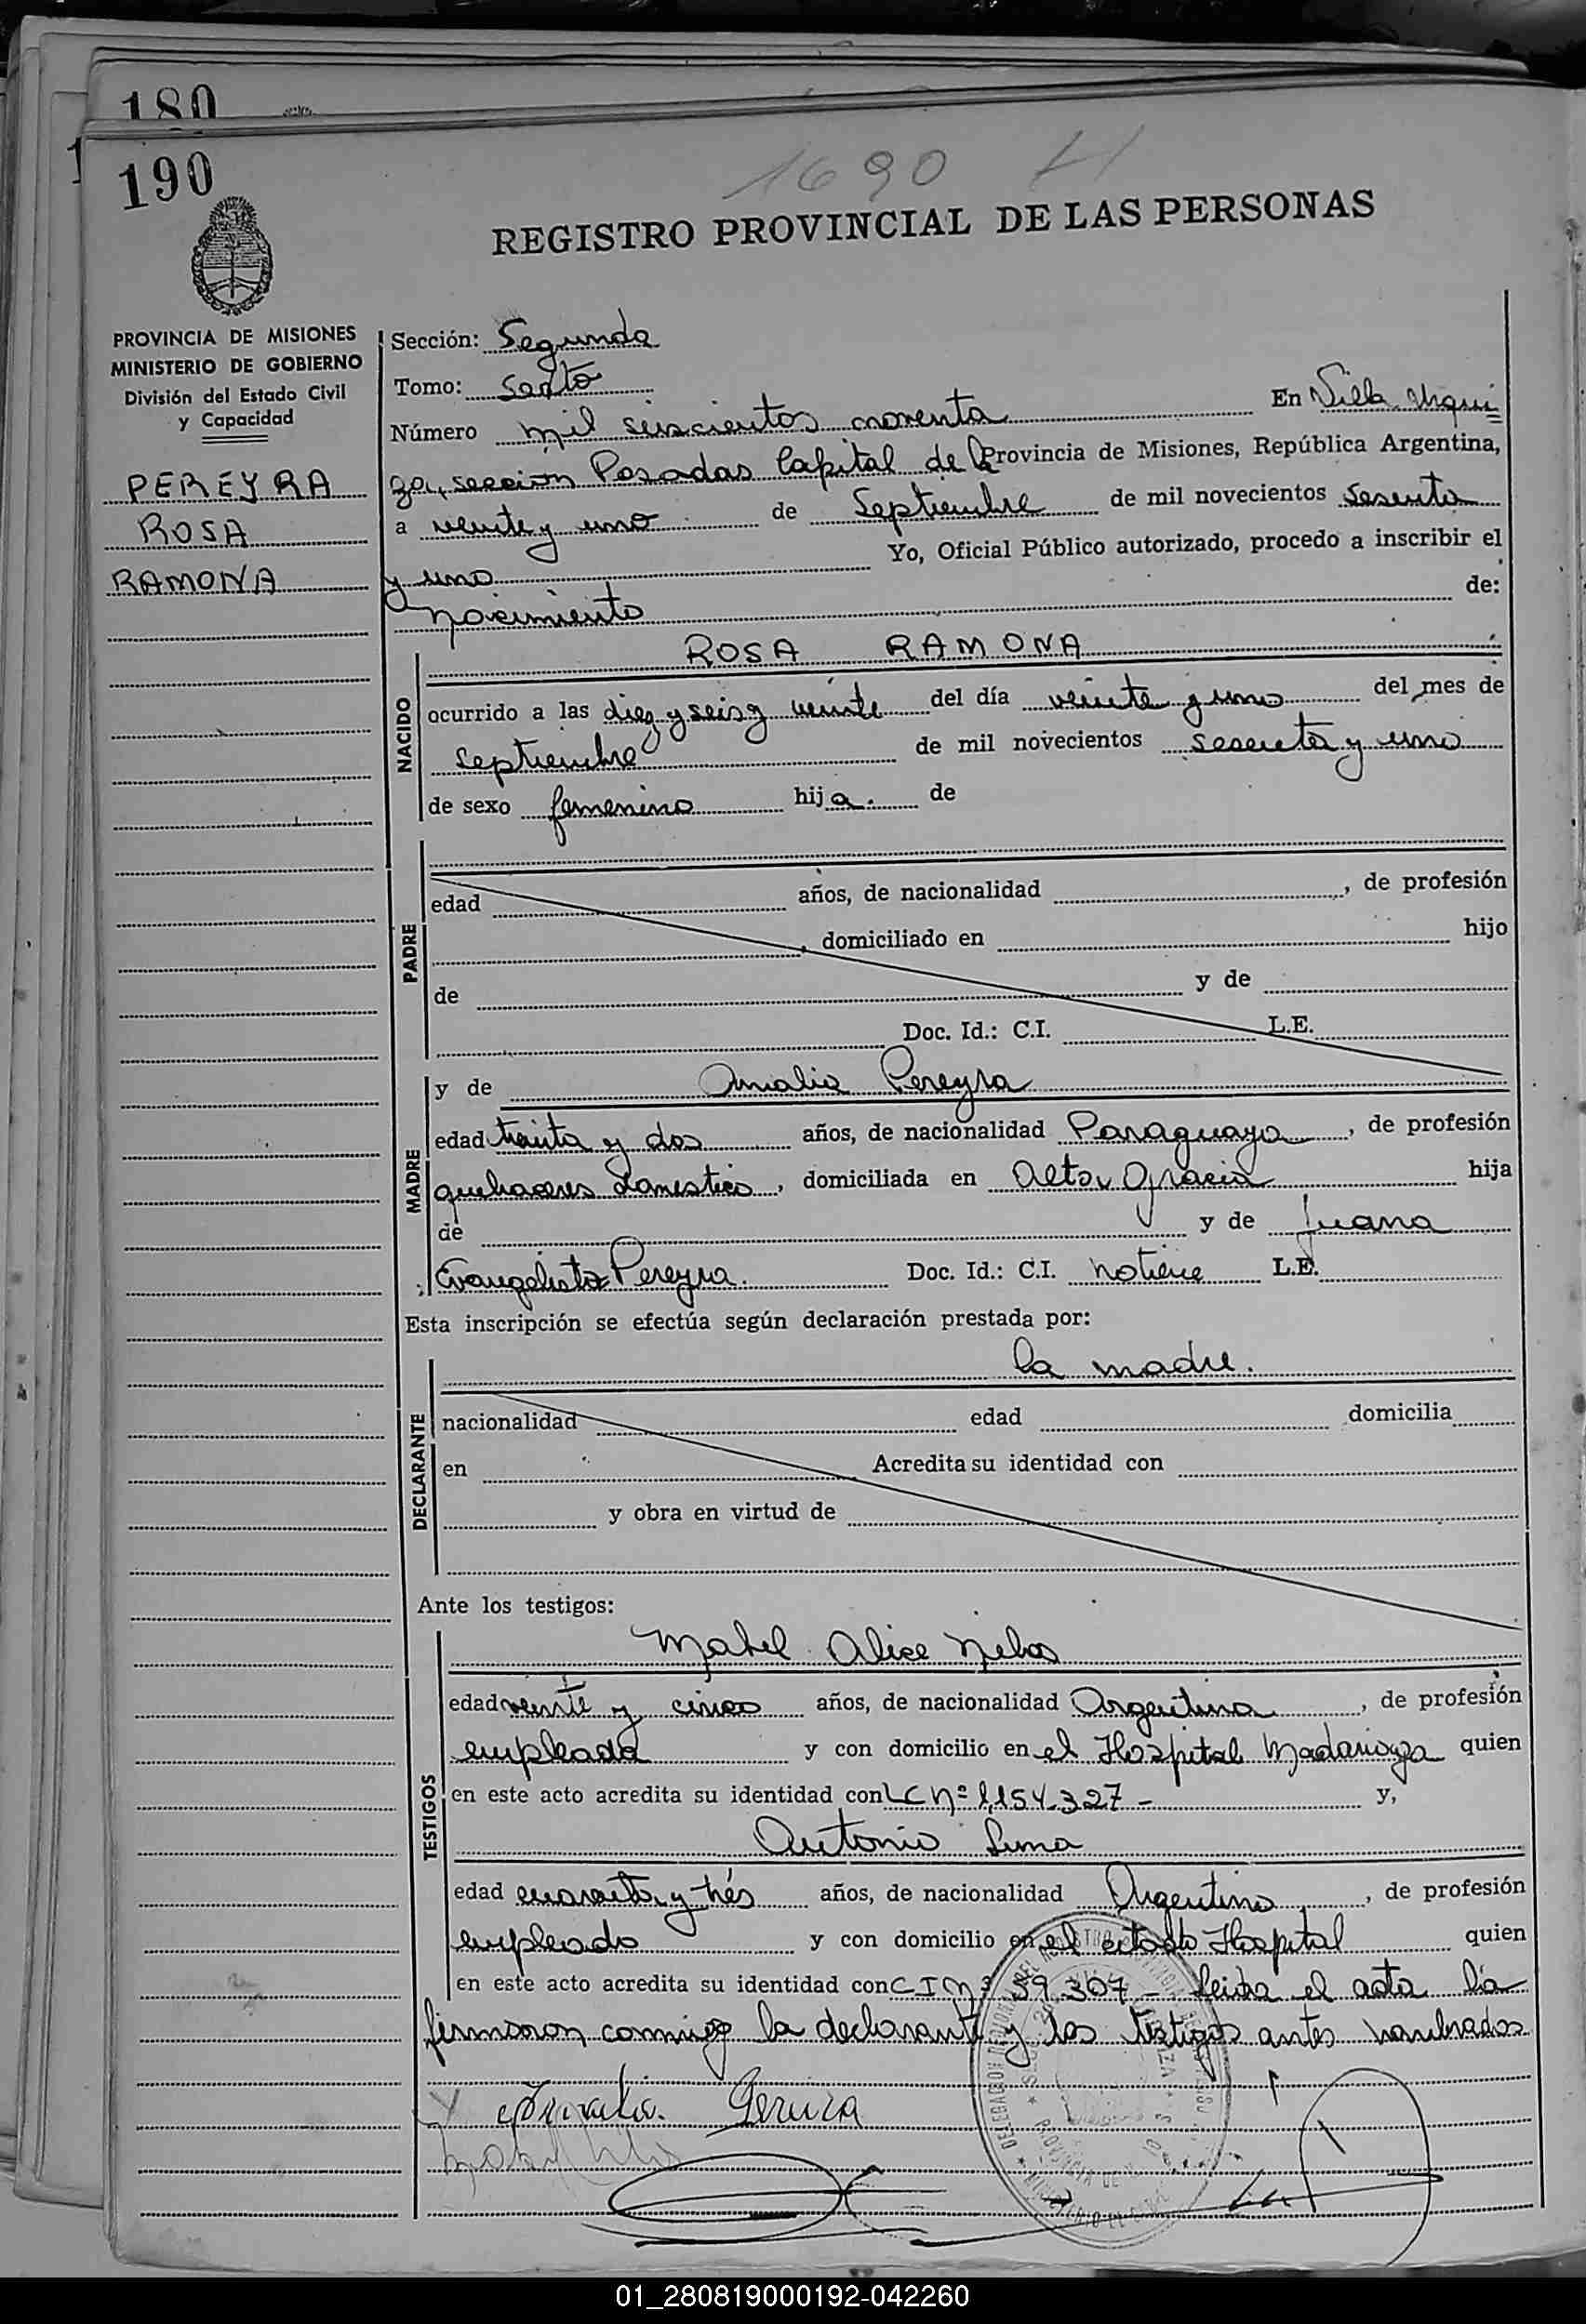 180
190
1690
REGISTRO PROVINCIAL DE LAS PERSONAS
PROVINCIA DE MISIONES
MINISTERIO DE GOBIERNO
División del Estado Civil
y Capacidad
PEREYRA
ROSA
RAMONA
Sección: Segunda
Tomo: Sexto
Número mil seiscientos noventa En Villa Urqui
za, sección Posadas Capital de la Provincia de Misiones, República Argentina,
a veinte y uno de Septiembre de mil novecientos Sesenta
y uno Yo, Oficial Público autorizado, procedo a inscribir el
nacimiento de:
NACIDO
ROSA RAMONA
ocurrido a las diez y seis y veinte del día veinte y uno del mes de
septiembre de mil novecientos sesenta y uno
de sexo femenino hija. de
PADRE
edad años, de nacionalidad , de profesión
, domiciliado en hijo
de y de
Doc. Id.: C.I. L.E.
MADRE
y de Amalia Pereyra
edad treinta y dos años, de nacionalidad Paraguaya, de profesión
quehaceres domestico, domiciliada en Alta Gracia hija
de y de Juana
Evangelista Pereyra. Doc. Id.: C.I. no tiene L.E.
Esta inscripción se efectúa según declaración prestada por:
DECLARANTE
la madre.
nacionalidad edad domicilia
en Acredita su identidad con
y obra en virtud de
Ante los testigos:
TESTIGOS
Mabel Alice
edad veinte y cinco años, de nacionalidad Argentina, de profesión
empleada y con domicilio en el Hospital Madariaga quien
en este acto acredita su identidad con LC nº 1.154.327 - y,
Antonio Lima
edad cuarenta y trés años, de nacionalidad Argentino, de profesión
empleado y con domicilio en el citado Hospital quien
en este acto acredita su identidad con C I nº 59.307 - Leida el acta la
firmaron conmigo la declarante y los testigos antes nombrados
01_280819000192-042260